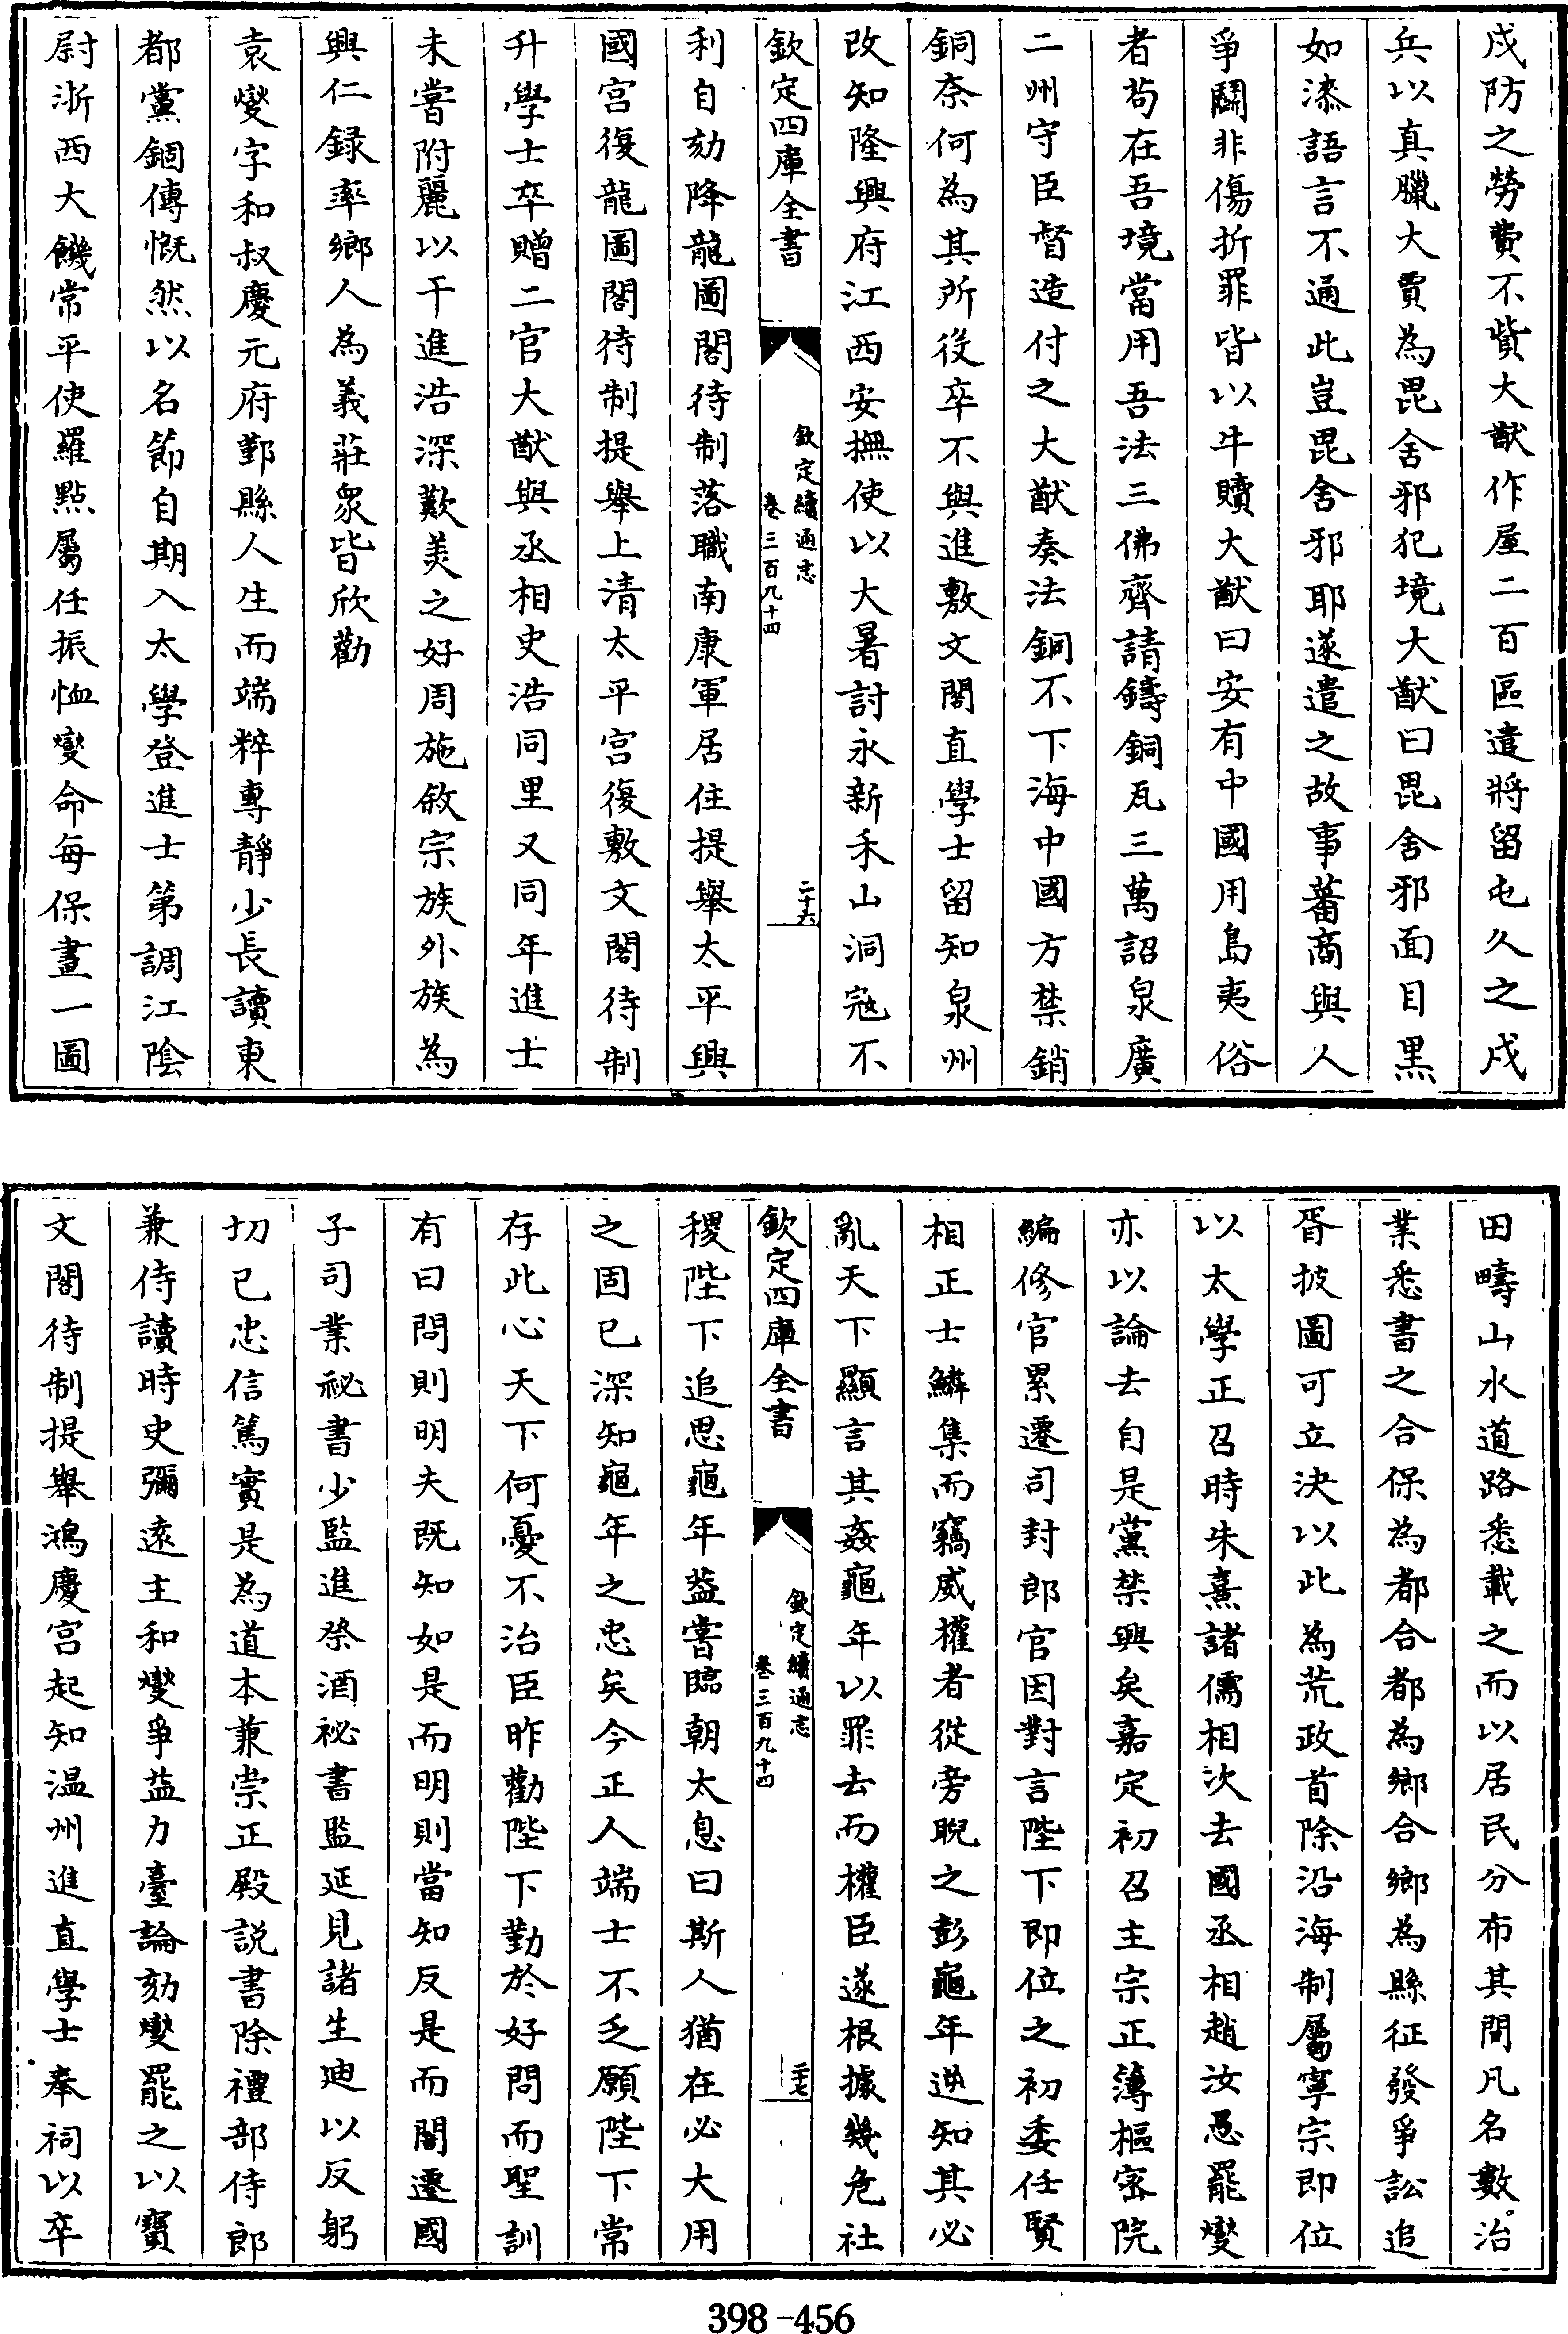 戍防之勞費不貲大猷作屋二百區遣將留屯久之戍
兵以真臘大賈為毘舍邪犯境大猷曰毘舍邪面目黒
如漆語言不通此豈毘舍邪耶遂遣之故事蕃商與人
爭鬭非傷折罪皆以牛贖大猷曰安有中國用島夷俗
者苟在吾境當用吾法三佛齊請鑄銅瓦三萬詔泉廣
二州守臣督造付之大猷奏法銅不下海中國方禁銷
銅奈何為其所役卒不與進敷文閣直學士留知泉州
改知隆興府江西安撫使以大暑討永新禾山洞冦不
欽定四庫全書
欽定續通志
卷三百九十四
二十六
利自劾降龍圖閣待制落職南康軍居住提舉太平興
國宮復龍圖閣待制提舉上清太平宮復敷文閣待制
升學士卒贈二官大猷與丞相史浩同里又同年進士
未嘗附麗以干進浩深歎美之好周施敘宗族外族為
興仁録率鄉人為義莊衆皆欣勸
袁燮字和叔慶元府鄞縣人生而端粹專靜少長讀東
都黨錮傳慨然以名節自期入太學登進士第調江陰
尉浙西大饑常平使羅點屬任振恤燮命每保畫一圖
田疇山水道路悉載之而以居民分布其間凡名數治
業悉書之合保為都合都為鄉合鄉為縣征發爭訟追
胥披圖可立決以此為荒政首除沿海制屬寧宗即位
以太學正召時朱熹諸儒相次去國丞相趙汝愚罷燮
亦以論去自是黨禁興矣嘉定初召主宗正簿樞密院
編修官累遷司封郎官因對言陛下即位之初委任賢
相正士鱗集而竊威權者從旁睨之彭龜年逆知其必
亂天下顯言其姦龜年以罪去而權臣遂根據幾危社
欽定四庫全書
欽定續通志
卷三百九十四
二十七
稷陛下追思龜年葢嘗臨朝太息曰斯人猶在必大用
之固已深知龜年之忠矣今正人端士不乏願陛下常
存此心天下何憂不治臣昨勸陛下勤於好問而聖訓
有曰問則明夫既知如是而明則當知反是而闇遷國
子司業祕書少監進祭酒祕書監延見諸生迪以反躬
切已忠信篤實是為道本兼崇正殿説書除禮部侍郎
兼侍讀時史彌遠主和燮爭益力臺論劾燮罷之以寶
文閣待制提舉鴻慶宮起知温州進直學士奉祠以卒
398-456